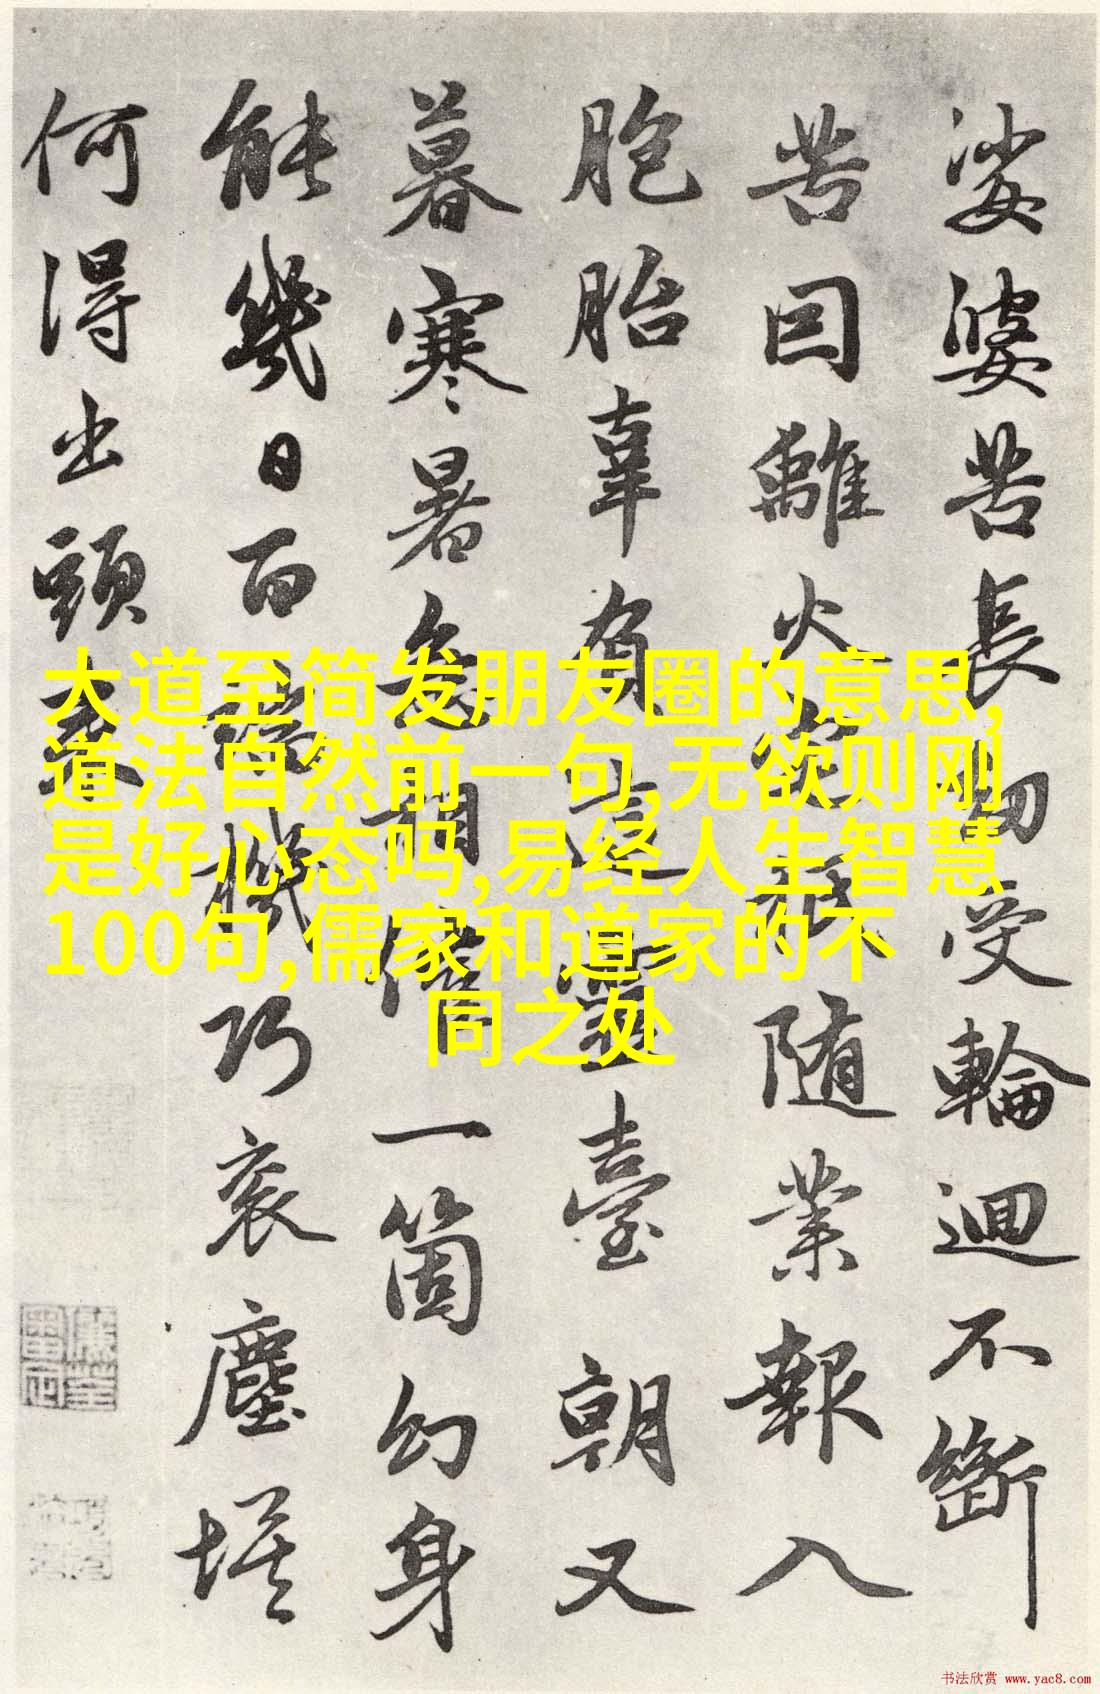 娑婆苦長劫受輪迴不斷
苦囙離火宅秖隨業報入
胞胎辜負這靈臺朝又
暮寒暑急相催一箇幻身
能幾日百端機巧衮塵埃
何得出頭來
大道至简发朋友圈的意思,
道法自然前一句,无欲则刚
是好心态吗,易经人生智慧
100句,儒家和道家的不
同之处
书法欣赏 www.yac8.com